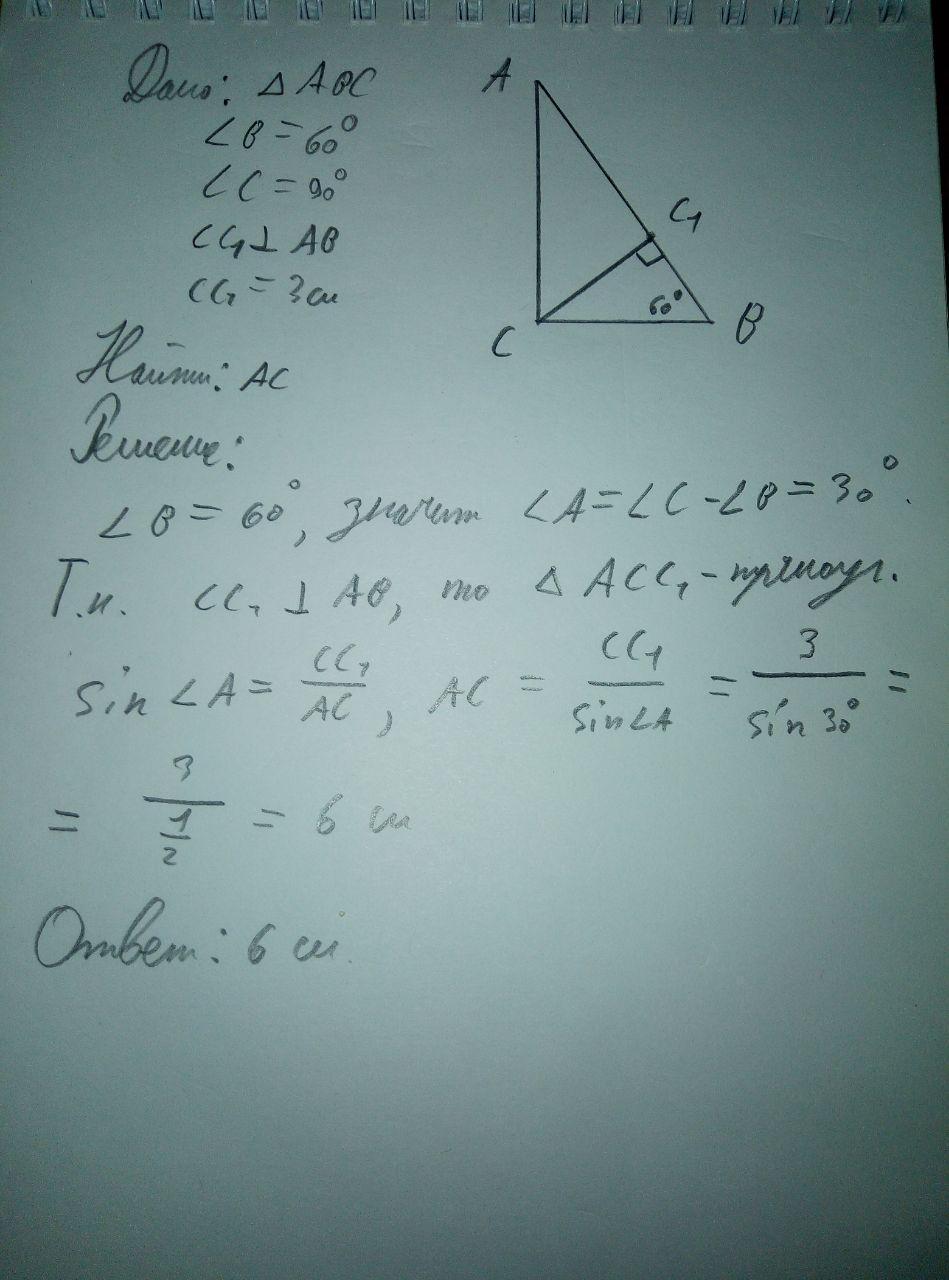 Дано: △ ABC
∠B = 60°
∠C = 90°
CC₁ ⊥ AB
CC₁ = 3 см
A
C₁
60°
C
B
Найти: AC
Решение:
∠B = 60°, значит ∠A = ∠C - ∠B = 30°.
Т.к. CC₁ ⊥ AB, то △ ACC₁ - прямоуг.
sin ∠A = CC₁/AC, AC = CC₁/sin∠A = 3/sin 30° =
= 3/(1/2) = 6 см
Ответ: 6 см.